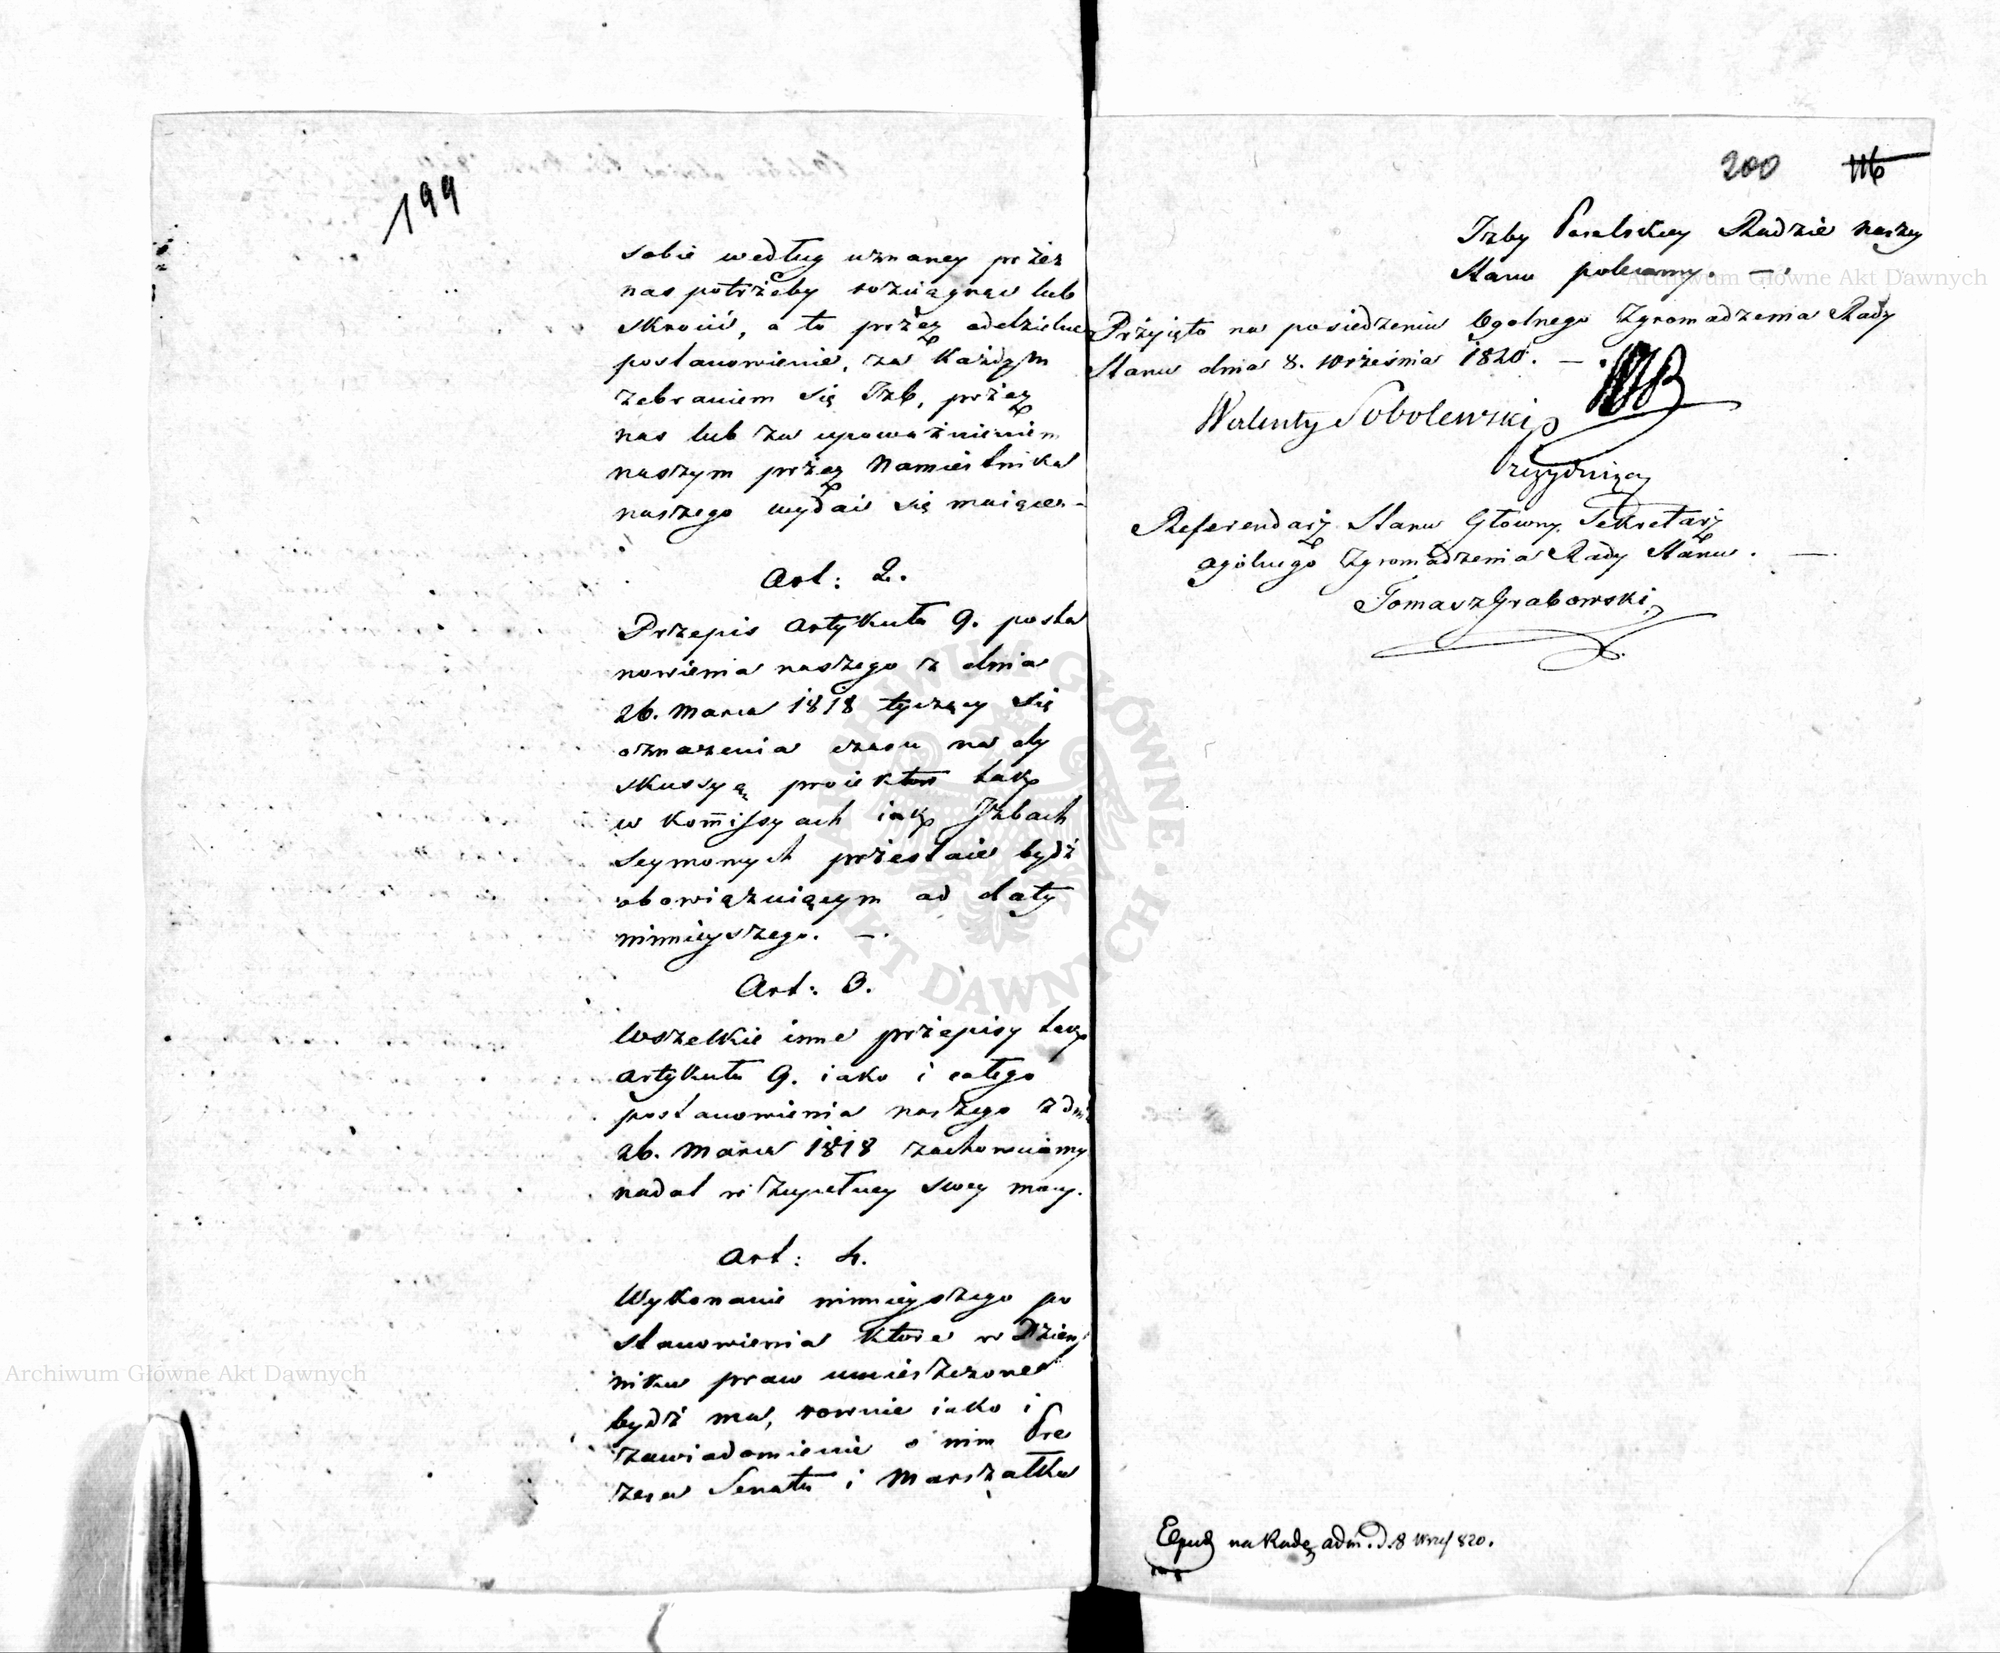 199
sobie według uznaney przez
nas potrzeby rozciągnąć lub
skrócić, a to przez oddzielne
postanowienie, za każdym
zebraniem się Izb, przez
nas lub za upoważnieniem
naszym przez Namiestnika
naszego wydać się maiące.-
Art: 2.
Przepis Artykułu 9. posta
nowienia naszego z dnia
26. Marca 1818 tyczący się
oznaczenia czasu na dy
skussyą proiektów tak
w Kommissyach iak Izbach
Seymowych przestaie bydź
obowiązuiącym od daty
ninieyszego. —.
Art: 3.
Wszelkie inne przepisy tak
Artykułu 9. iako i całego
postanowienia naszego z dnia
26. Marca 1818 zachowuiemy
nadal w zupełney swey mocy.
Art: 4.
Wykonanie ninieyszego po
stanowienia które w Dzien
niku praw umieszczone
bydź ma, rownie iako i
zawiadomienie o nim Pre
zesa Senatu i Marszałka
200 116
Izby Poselskiey Radzie naszey
Stanu polecamy. —.
Przyięto na posiedzeniu Ogolnego Zgromadzenia Rady
Stanu dnia 8. Września 1820. —.
Walenty Sobolewski
Prezyduiący
Referendarz Stanu Główny Sekretarz
ogólnego Zgromadzenia Rady Stanu. —.
Tomasz Grabowski
na Radę adm. d. 8 Wrześ 820.
Archiwum Główne Akt Dawnych
Archiwum Główne Akt Dawnych
ARCHIWUM GŁÓWNE AKT DAWNYCH